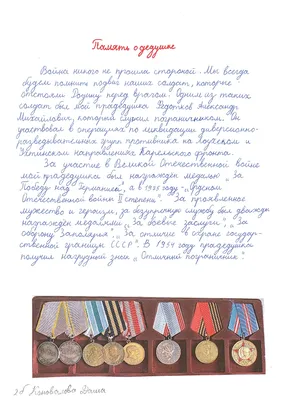 Память о дедушке
Война никого не прошла стороной. Мы всегда
будем помнить подвиг наших солдат, которые
отстояли Родину перед врагом. Одним из таких
солдат был мой прадедушка Федотков Александр
Михайлович, который служил пограничником. Он
участвовал в операциях по ликвидации диверсионно-
разведывательных групп противника на Лоухском и
Ухтинском направлениях Карельского фронта.
За участие в Великой Отечественной войне
мой прадедушка был награжден медалью „За
Победу над Германией", а в 1985 году - „Орденом
Отечественной войны II степени". За проявленное
мужество и героизм, за безупречную службу был дважды
награжден медалями „За боевые заслуги", „За
оборону Заполярья", „За отличие в охране государ-
ственной границы СССР". В 1954 году прадедушка
получил нагрудный знак „Отличный пограничник".
2б Коновалова Даша